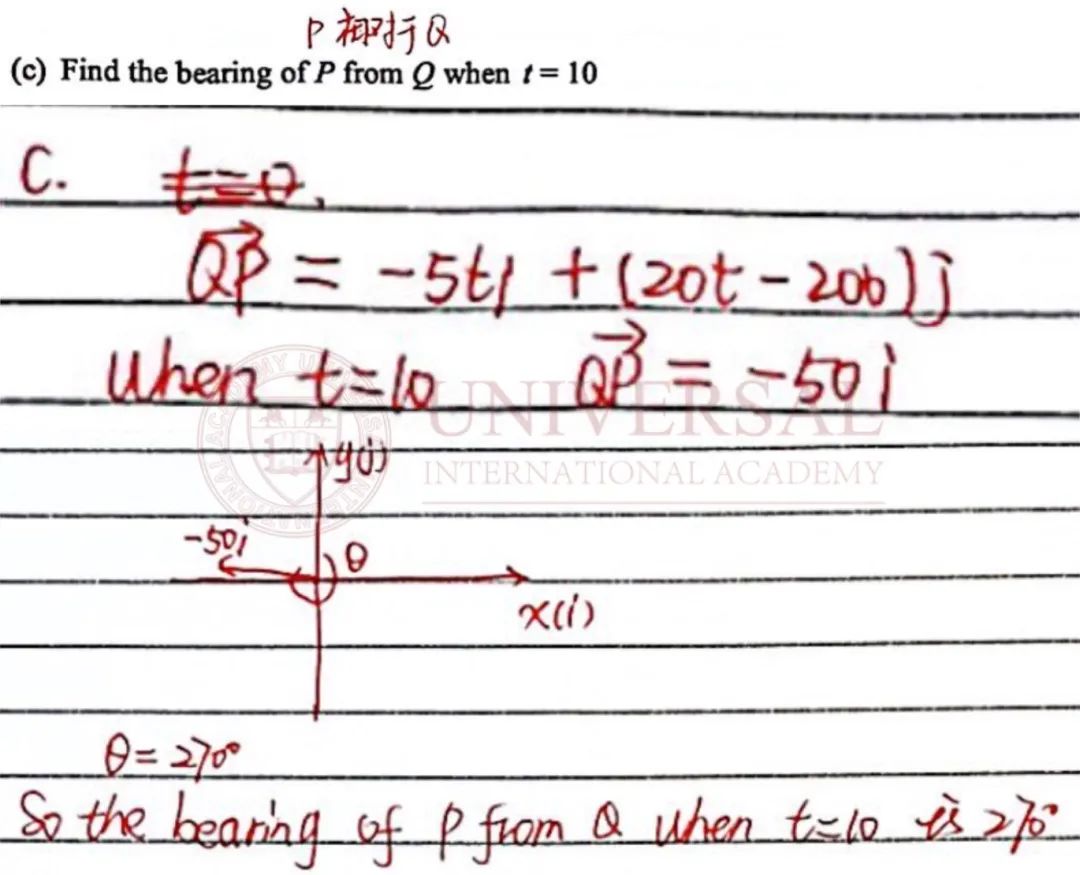 P 相对于 Q
(c) Find the bearing of P from Q when t = 10
C. t=0,
QP = -5ti + (20t - 200)j
When t=10 QP = -50i
UNIVERSAL
INTERNATIONAL ACADEMY
y(j)
-50i θ
x(i)
θ = 270°
So the bearing of P from Q when t=10 is 270°